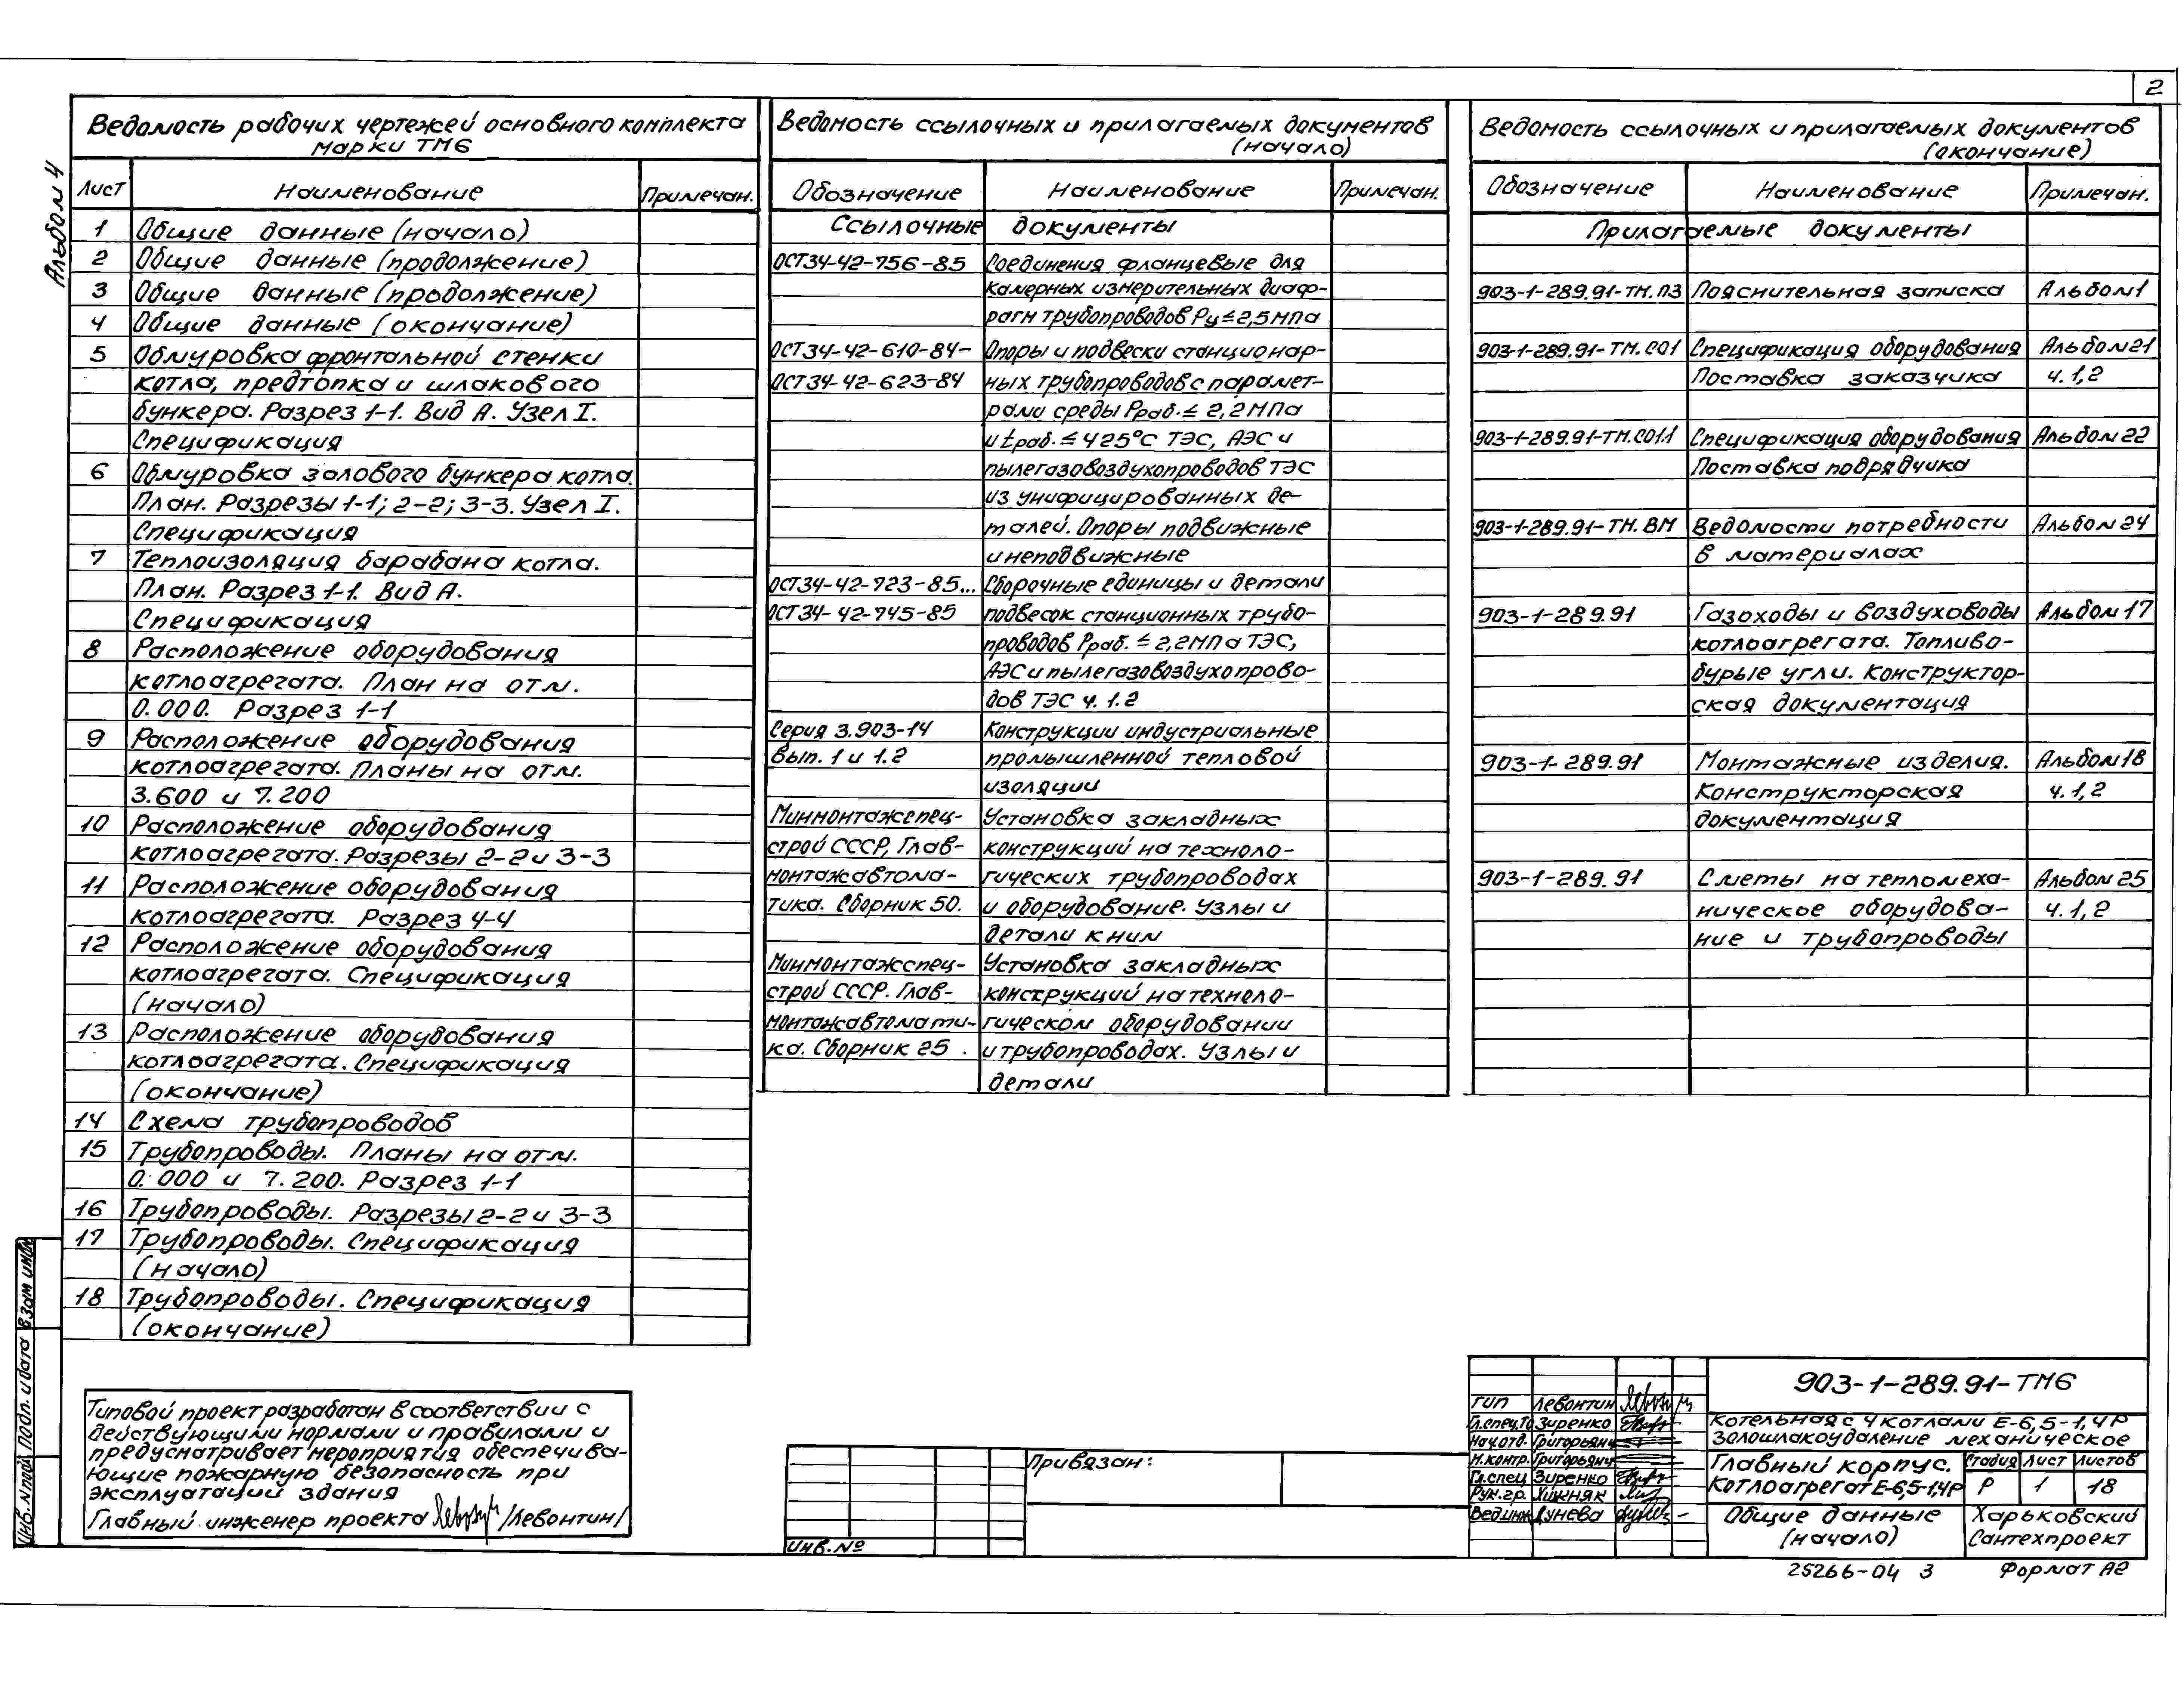 2
Альбом 4
Ведомость рабочих чертежей основного комплекта
марки ТМ6
Лист Наименование Примечан.
1 Общие данные (начало)
2 Общие данные (продолжение)
3 Общие данные (продолжение)
4 Общие данные (окончание)
5 Обмуровка фронтальной стенки
котла, предтопка и шлакового
бункера. Разрез 1-1. Вид А. Узел I.
Спецификация
6 Обмуровка золового бункера котла.
План. Разрезы 1-1; 2-2; 3-3. Узел I.
Спецификация
7 Теплоизоляция барабана котла.
План. Разрез 1-1. Вид А.
Спецификация
8 Расположение оборудования
котлоагрегата. План на отм.
0.000. Разрез 1-1
9 Расположение оборудования
котлоагрегата. Планы на отм.
3.600 и 7.200
10 Расположение оборудования
котлоагрегата. Разрезы 2-2 и 3-3
11 Расположение оборудования
котлоагрегата. Разрез 4-4
12 Расположение оборудования
котлоагрегата. Спецификация
(начало)
13 Расположение оборудования
котлоагрегата. Спецификация
(окончание)
14 Схема трубопроводов
15 Трубопроводы. Планы на отм.
0.000 и 7.200. Разрез 1-1
16 Трубопроводы. Разрезы 2-2 и 3-3
17 Трубопроводы. Спецификация
(начало)
18 Трубопроводы. Спецификация
(окончание)
Ведомость ссылочных и прилагаемых документов
(начало)
Обозначение Наименование Примечан.
Ссылочные документы
ОСТ34-42-756-85 Соединения фланцевые для
камерных измерительных диаф-
рагм трубопроводов Ру≤2,5МПа
ОСТ34-42-610-84- Опоры и подвески станционар-
ОСТ34-42-623-84 ных трубопроводов с парамет-
рами среды Рраб.≤ 2,2МПа
и tраб.≤425°С ТЭС, АЭС и
пылегазовоздухопроводов ТЭС
из унифицированных де-
талей. Опоры подвижные
и неподвижные
ОСТ34-42-723-85... Сборочные единицы и детали
ОСТ34-42-745-85 подвесок станционных трубо-
проводов Рраб.≤2,2МПа ТЭС,
АЭС и пылегазовоздухопрово-
дов ТЭС ч. 1.2
Серия 3.903-14 Конструкции индустриальные
Вып. 1 и 1.2 промышленной тепловой
изоляции
Минмонтажспец- Установка закладных
строй СССР, Глав- конструкций на техноло-
монтажавтома- гических трубопроводах
тика. Сборник 50. и оборудование. Узлы и
детали к ним
Минмонтажспец- Установка закладных
строй СССР. Глав- конструкций на техноло-
монтажавтомати- гическом оборудовании
ка. Сборник 25. и трубопроводах. Узлы и
детали
Ведомость ссылочных и прилагаемых документов
(окончание)
Обозначение Наименование Примечан.
Прилагаемые документы
903-1-289.91-ТМ.ПЗ Пояснительная записка Альбом 1
903-1-289.91-ТМ.СО1 Спецификация оборудования Альбом 21
Поставка заказчика ч. 1,2
903-1-289.91-ТМ.СО1.1 Спецификация оборудования Альбом 22
Поставка подрядчика
903-1-289.91-ТМ.ВМ Ведомости потребности Альбом 24
в материалах
903-1-289.91 Газоходы и воздуховоды Альбом 17
котлоагрегата. Топливо-
бурые угли. Конструктор-
ская документация
903-1-289.91 Монтажные изделия. Альбом 18
Конструкторская ч. 1,2
документация
903-1-289.91 Сметы на тепломеха- Альбом 25
ническое оборудова- ч. 1,2
ние и трубопроводы
Типовой проект разработан в соответствии с
действующими нормами и правилами и
предусматривает мероприятия обеспечива-
ющие пожарную безопасность при
эксплуатации здания
Главный инженер проекта /Левонтин/
Инв. №подл Подп. и дата Взам инв
Инв. №
Привязан:
ГИП Левонтин
Гл.спец.То Зиренко
Нач.отд. Григорьянц
Н.контр. Григорьянц
Гл.спец Зиренко
Рук.гр. Хижняк
Вед.инж Дунева
903-1-289.91-ТМ6
Котельная с 4 котлами Е-6,5-1,4Р
Золошлакоудаление механическое
Главный корпус.
Котлоагрегат Е-6,5-1,4Р
Стадия Лист Листов
Р 1 18
Общие данные
(начало)
Харьковский
Сантехпроект
25266-04 3 Формат А2